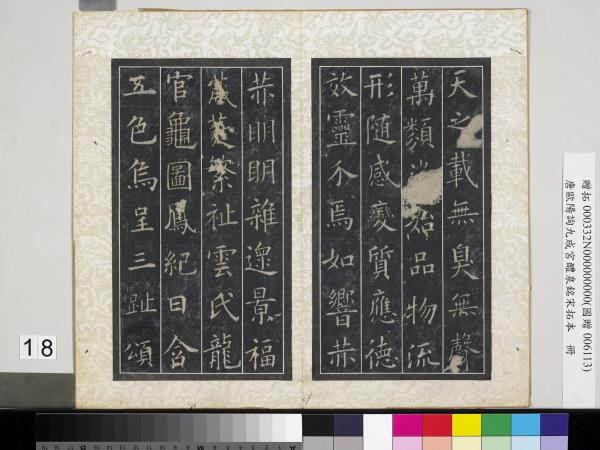 天之載無臭無聲
萬類資始品物流
形隨感變質應德
效靈介焉如響赫
赫明明雜遝景福
葳蕤繁祉雲氏龍
官龜圖鳳紀日含
五色烏呈三趾頌
贈拓 000332N000000000(國贈 006113)
唐歐陽詢九成宮醴泉銘宋拓本 冊
18